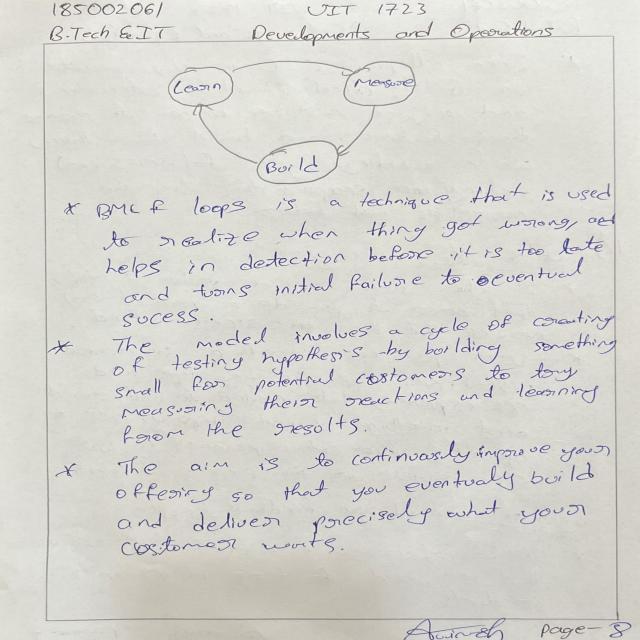 185002061 UIT 1723
B.Tech & IT Developments and Operations
Learn Measure
Build
* BMLF loops is a technique that is used
to realize when thing got wrong, and
helps in detection before it is too late
and turns initial failure to eventual
sucess.
* The model involves a cycle of creating
of testing hypothesis by building something
small for potential customers to try
measuring their reactions and learning
from the results.
* The aim is to continuously improve your
offering so that you eventualy build
and deliver precisely what your
customer wants.
page-8